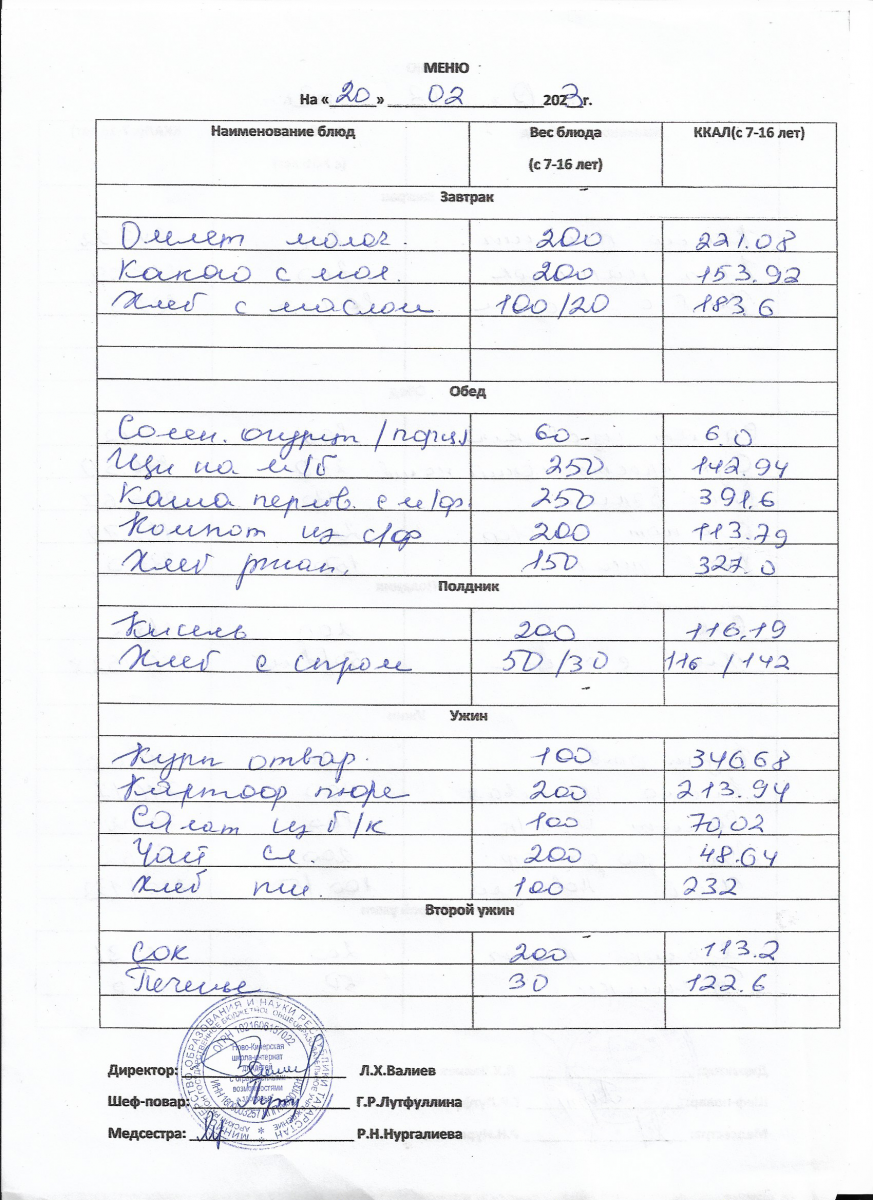 МЕНЮ
На «20» 02 2023г.
Наименование блюд Вес блюда (с 7-16 лет) ККАЛ(с 7-16 лет)
Завтрак
Омлет молоч. 200 221.08
Какао с мол. 200 153.92
Хлеб с маслом 100/20 183.6
Обед
Солен. огурец /порц. 60 6.0
Щи на м/б 250 142.94
Каша перлов. с м/ф. 250 391.6
Компот из с/ф 200 113.79
Хлеб ржан. 150 327.0
Полдник
Кисель 200 116.19
Хлеб с сыром 50/30 116/142
Ужин
Куры отвар. 100 346.68
Картоф пюре 200 213.94
Салат из б/к 100 70,02
Чай сл. 200 48.64
Хлеб пш. 100 232
Второй ужин
Сок 200 113.2
Печенье 30 122.6
Директор: Л.Х.Валиев
Шеф-повар: Г.Р.Лутфуллина
Медсестра: Р.Н.Нургалиева
МИНИСТЕРСТВО ОБРАЗОВАНИЯ И НАУКИ РЕСПУБЛИКИ ТАТАРСТАН
ОГРН 1021606157022
Ново-Кинерская
школа-интернат